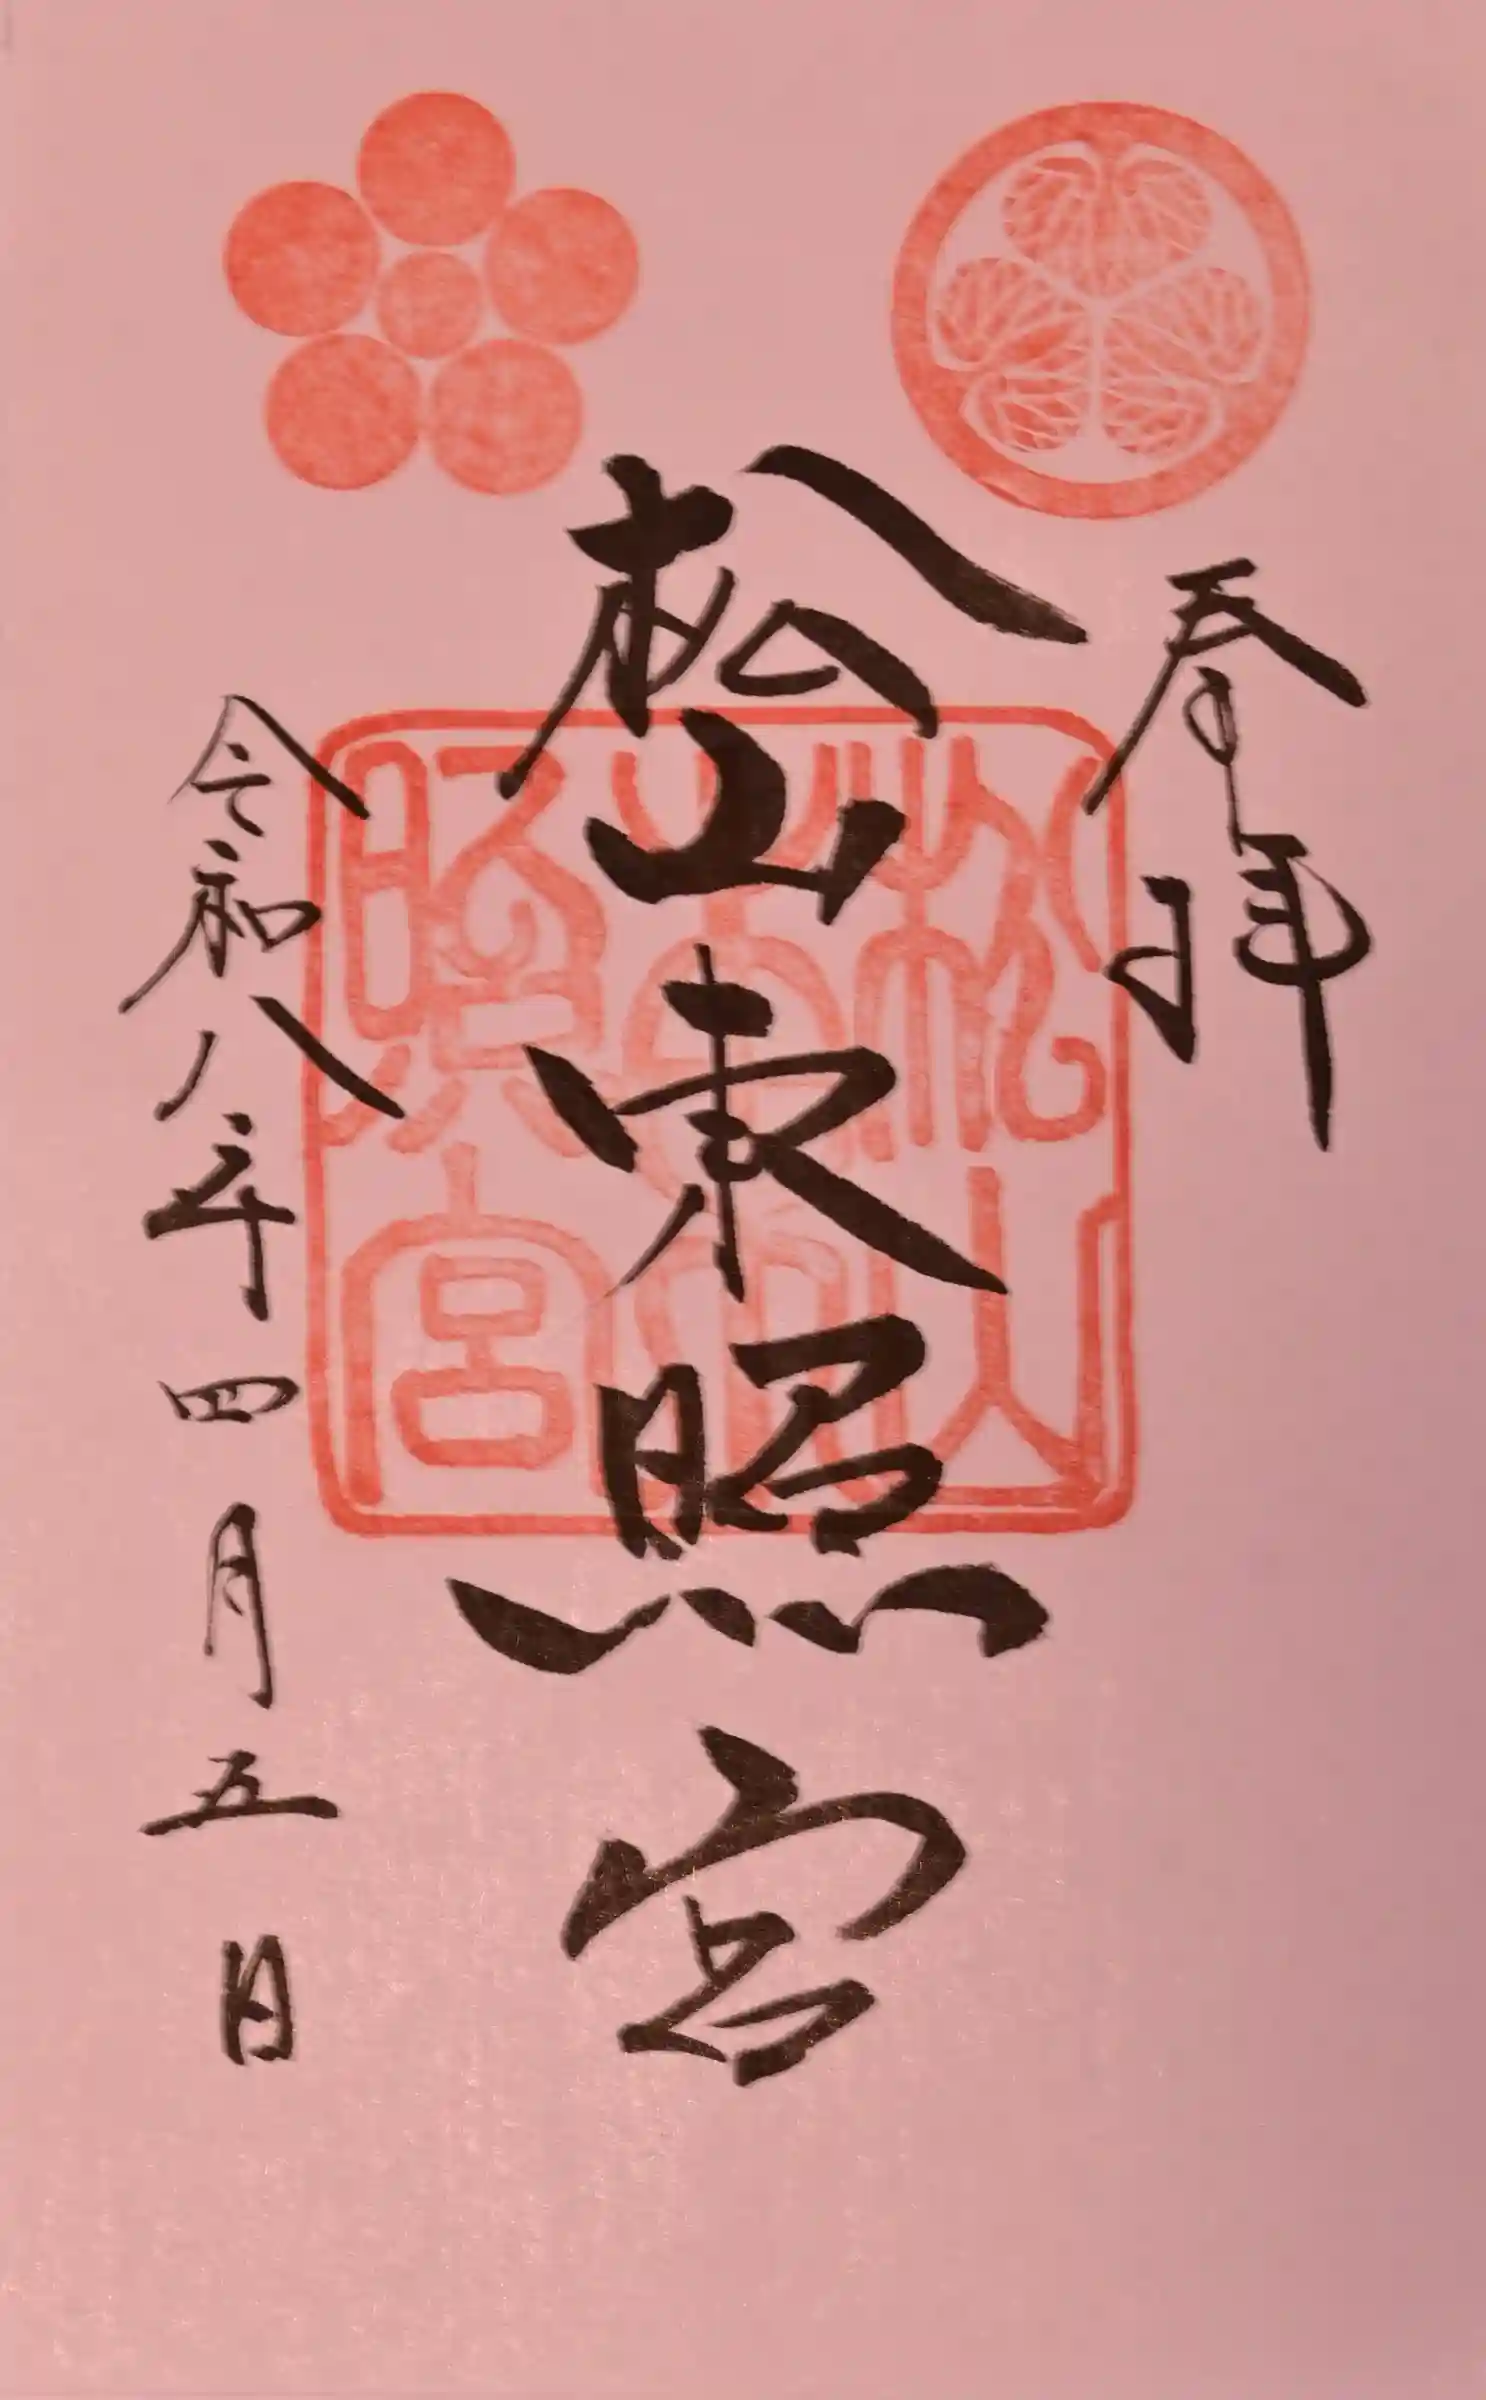 奉拝
松山東照宮
令和八年四月五日
松山東照宮